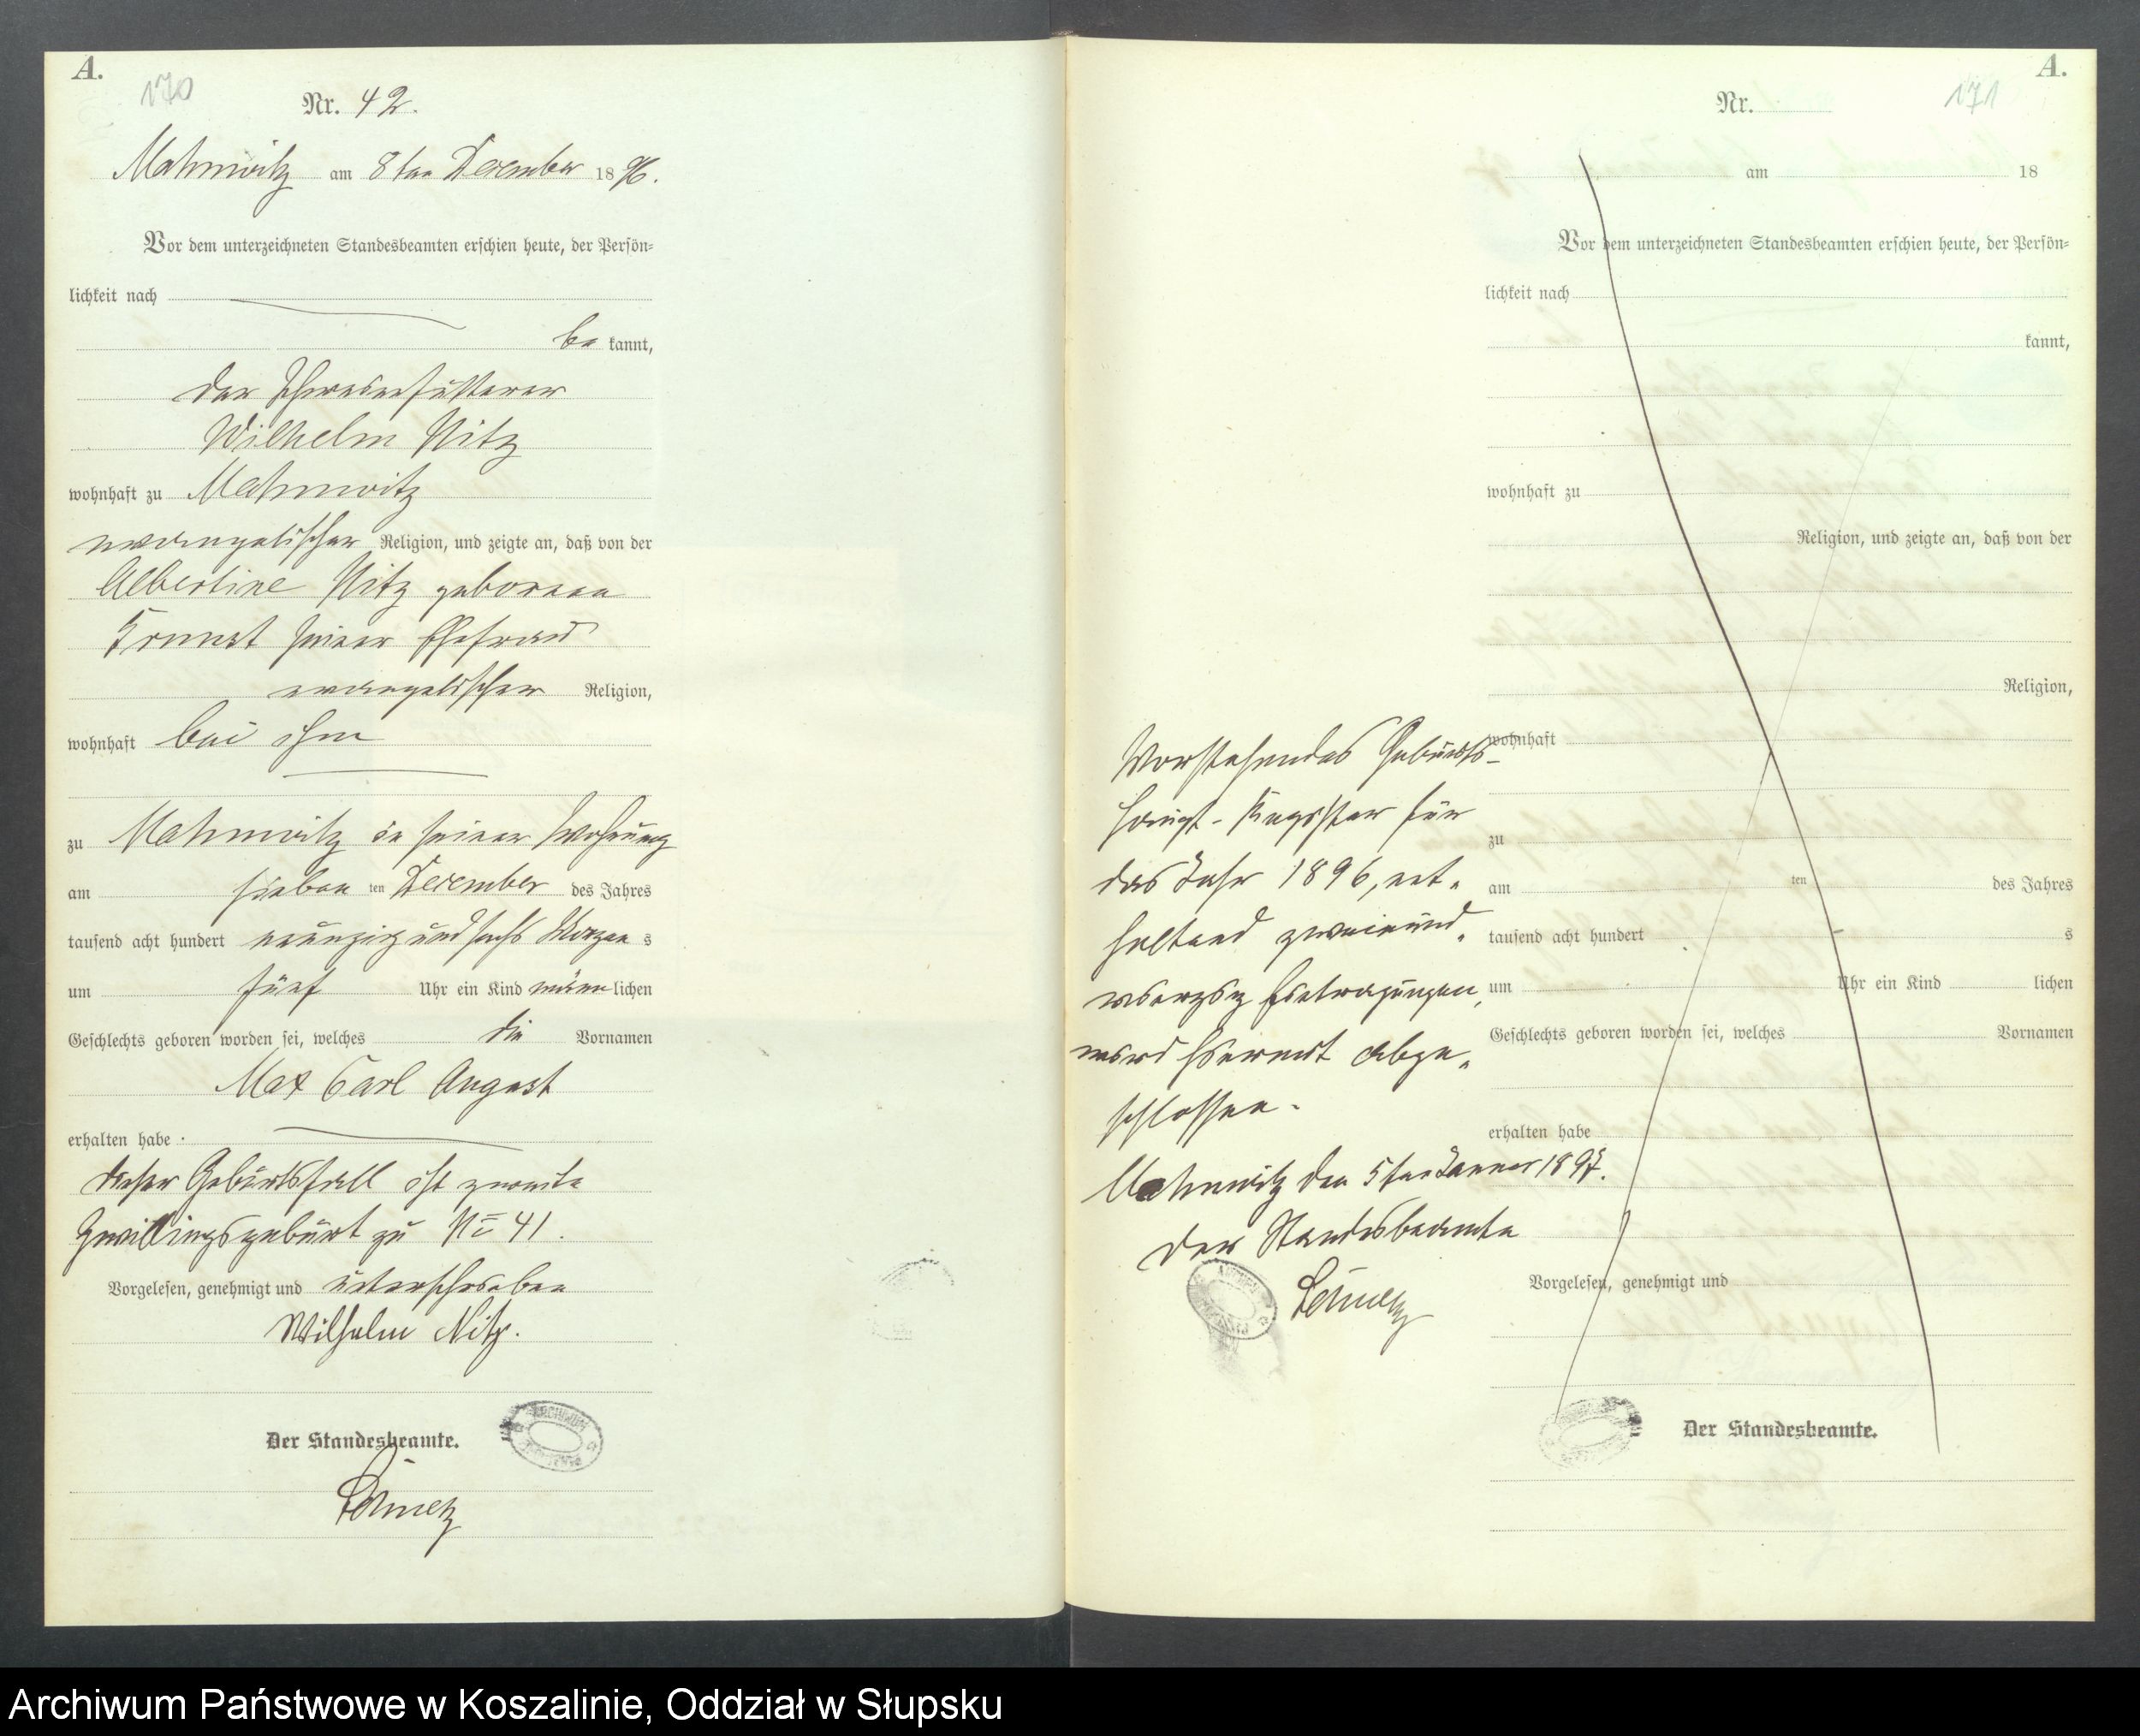 A.
170
Nr. 42.
Mahnwitz am 8ten December 1896.
Vor dem unterzeichneten Standesbeamten erschien heute, der Persön-
lichkeit nach
be kannt,
der
Wilhelm Nitz
wohnhaft zu Mahnwitz
evangelischer Religion, und zeigte an, daß von der
Albertine Nitz geborene
seiner Ehefrau
evangelischer Religion,
wohnhaft bei ihm
zu Mahnwitz in seiner Wohnung
am sieben ten December des Jahres
tausend acht hundert neunzig und sechs Morgen s
um fünf Uhr ein Kind männ lichen
Geschlechts geboren worden sei, welches die Vornamen
Max Carl August
erhalten habe.
Dieser Geburtsfall ist zweite
Zwillingsgeburt zu No 41.
Vorgelesen, genehmigt und unterschrieben
Wilhelm Nitz.
Der Standesbeamte.
A.
171
Nr.
am 18
Vor dem unterzeichneten Standesbeamten erschien heute, der Persön-
lichkeit nach
kannt,
wohnhaft zu
Religion, und zeigte an, daß von der
Religion,
wohnhaft
zu
am ten des Jahres
tausend acht hundert s
um Uhr ein Kind lichen
Geschlechts geboren worden sei, welches Vornamen
erhalten habe
Vorgelesen, genehmigt und
Der Standesbeamte.
Vorstehendes Geburts-
Haupt-Register für
das Jahr 1896, ent-
haltend zweiund-
vierzig Eintragungen,
wird hiermit abge-
schlossen.
Mahnwitz den 5ten Januar 1897.
Der Standesbeamte
Archiwum Państwowe w Koszalinie, Oddział w Słupsku